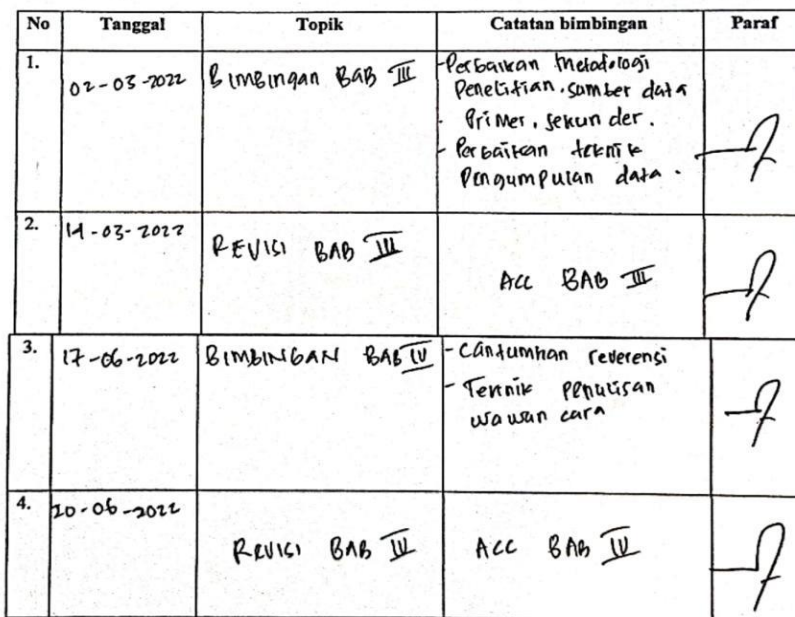 No Tanggal Topik Catatan bimbingan Paraf
1. 02-03-2022 Bimbingan BAB III -Perbaikan Metodologi
Penelitian. sumber data
- Primer, sekunder.
- Perbaikan teknik
Pengumpulan data.
2. 14-03-2022 REVISI BAB III ACC BAB III
3. 17-06-2022 BIMBINGAN BAB IV - Cantumkan reverensi
- Teknik Penulisan
wawan cara
4. 20-06-2022 REVISI BAB IV ACC BAB IV